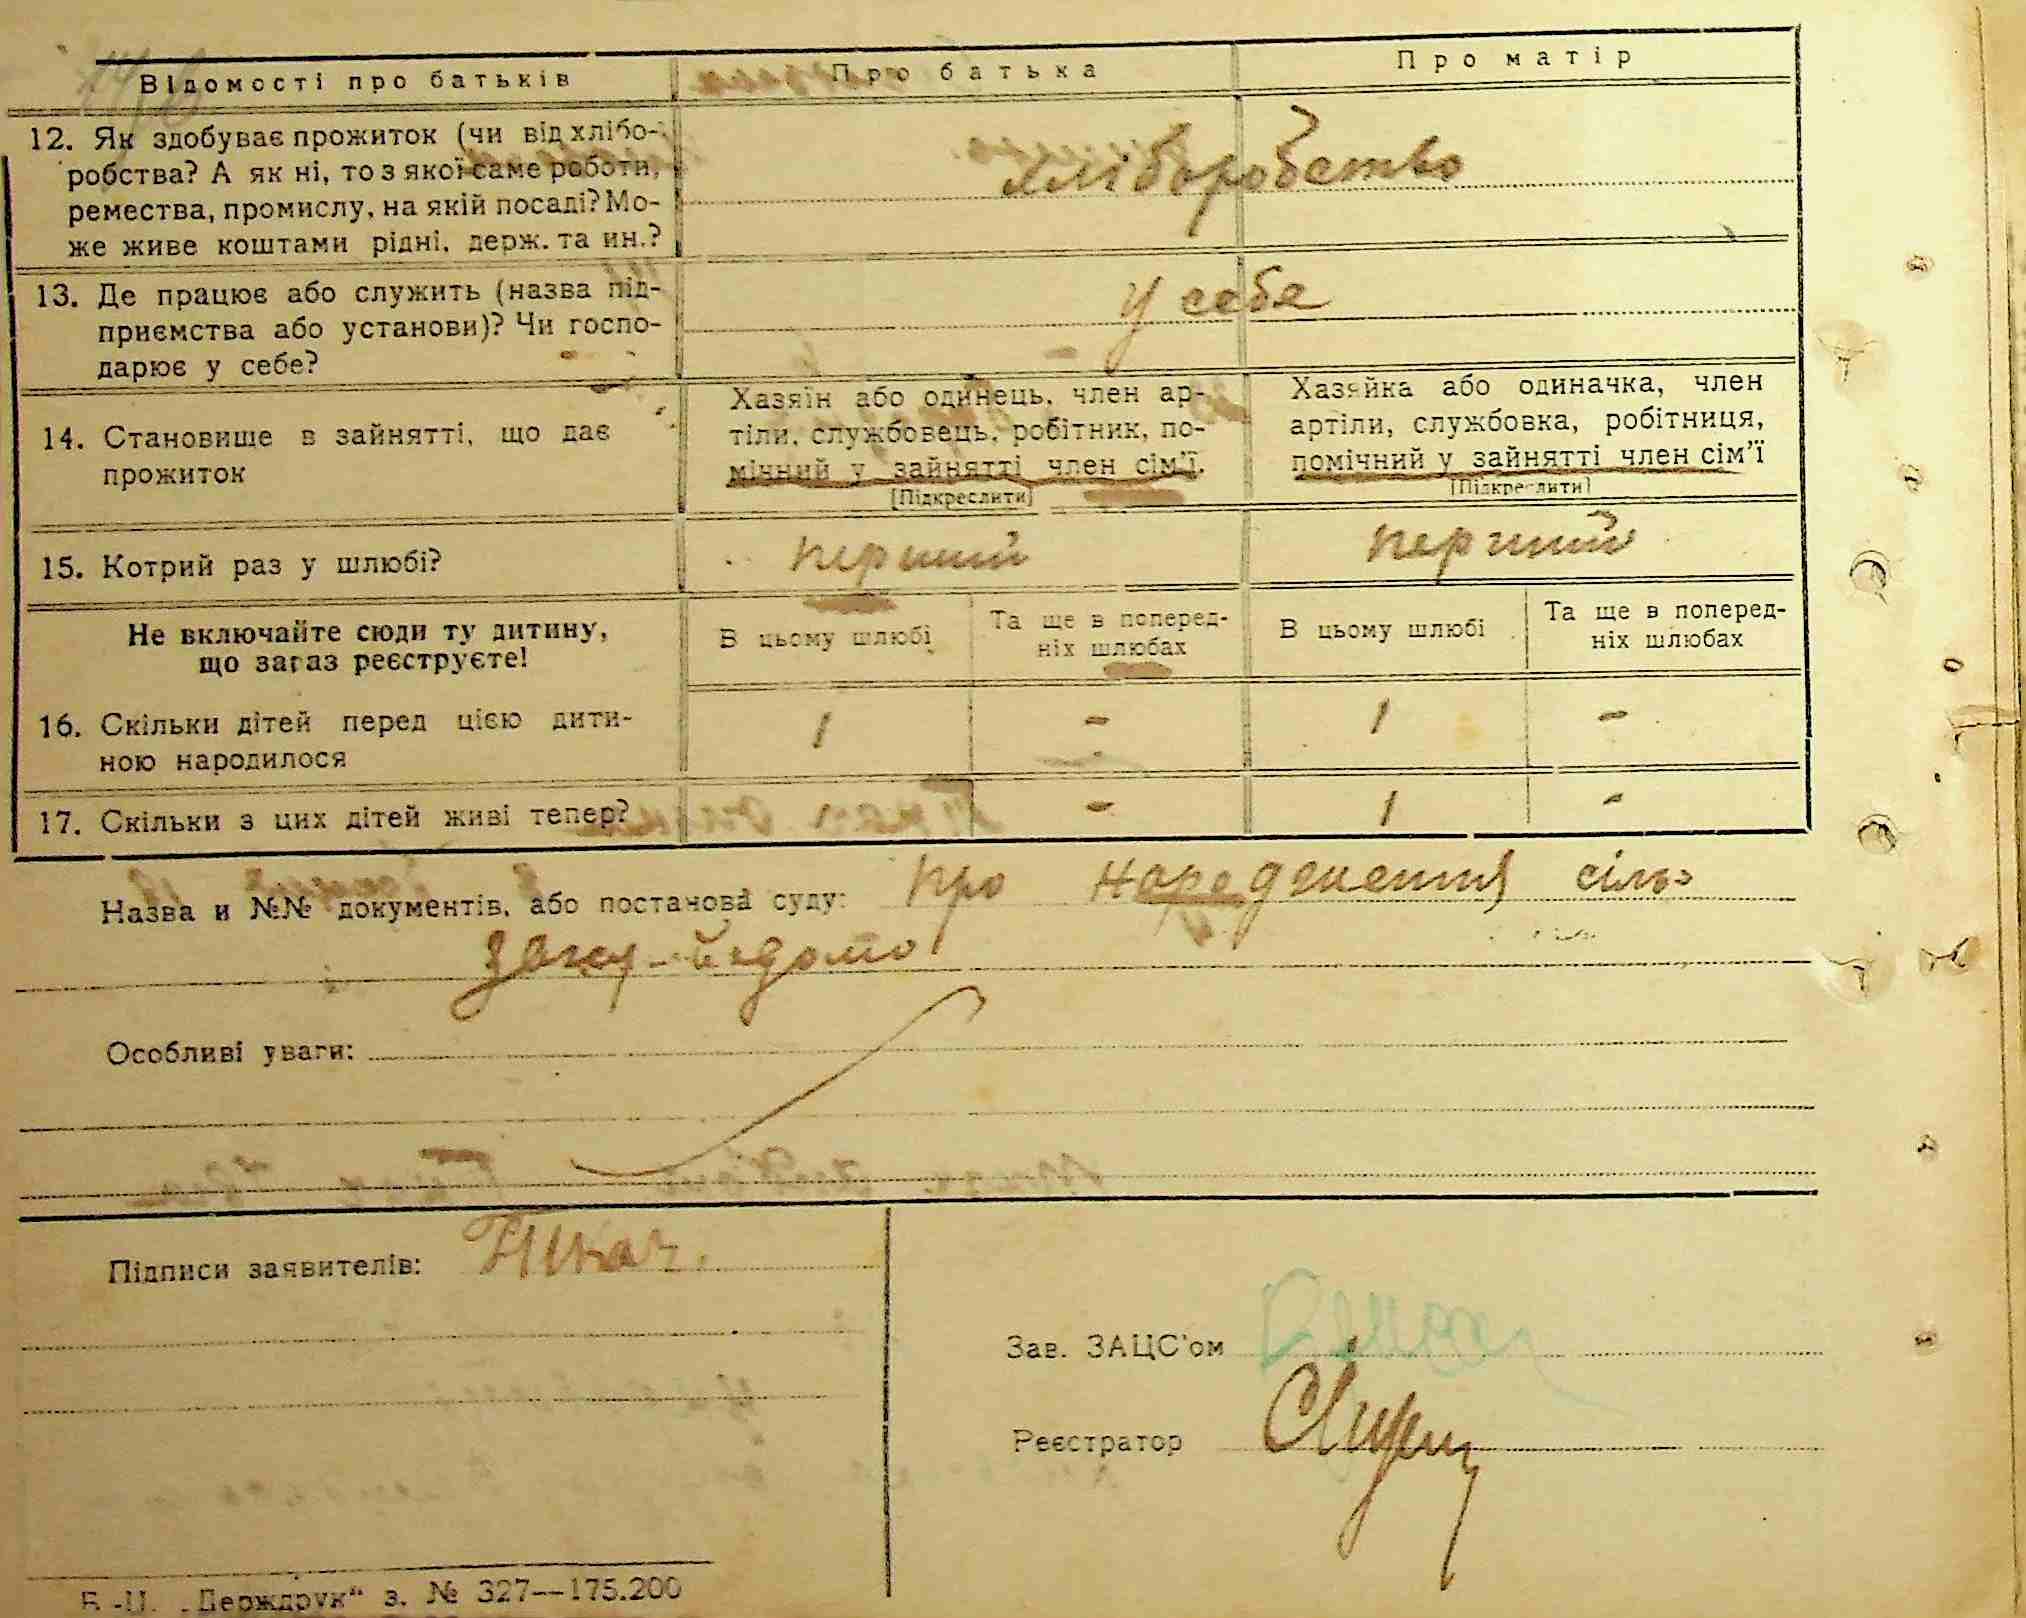 Відомості про батьків
Про батька
Про матір
12. Як здобуває прожиток (чи від хлібо-
робства? А як ні, то з якої саме роботи,
ремества, промислу, на якій посаді? Мо-
же живе коштами рідні, держ. та ин.?
хліборобство
13. Де працює або служить (назва під-
приємства або установи)? Чи госпо-
дарює у себе?
у себе
14. Становище в зайнятті, що дає
прожиток
Хазяїн або одинець, член ар-
тіли, службовець, робітник, по-
мічний у зайнятті член сім'ї.
[Підкреслити]
Хазяйка або одиначка, член
артіли, службовка, робітниця,
помічний у зайнятті член сім'ї
[Підкреслити]
15. Котрий раз у шлюбі?
перший
перший
Не включайте сюди ту дитину,
що зараз реєструєте!
В цьому шлюбі
Та ще в поперед-
ніх шлюбах
В цьому шлюбі
Та ще в поперед-
ніх шлюбах
16. Скільки дітей перед цією дити-
ною народилося
1 - 1 -
17. Скільки з цих дітей живі тепер?
- 1 -
Назва и №№ документів, або постанова суду: про народження сіль-
Особливі уваги:
Підписи заявителів: Ткач.
Зав. ЗАЦС'ом
Реєстратор
Б.-Ц. „Держдрук“ з. № 327—175.200